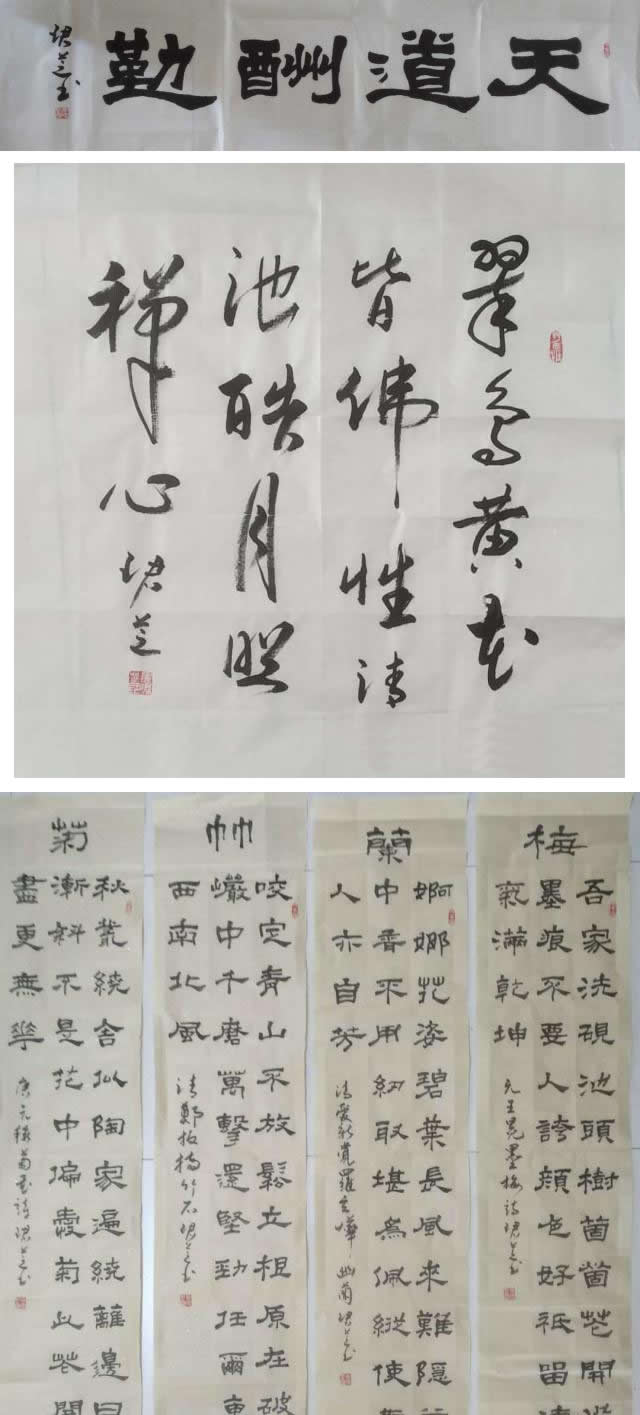 天道酬勤
珺芝书
翠鸟黄花
皆佛性清
池皓月照
禅心
珺芝
梅
吾家洗硯池頭樹箇箇花開
墨痕不要人誇顔色好祇留清
氣滿乾坤
元王冕墨梅诗珺芝书
蘭
婀娜花姿碧葉長風來難隱
中香不用紉取堪為佩縱使
人亦自芳
清爱新觉罗玄燁 幽蘭珺芝书
竹
咬定青山不放鬆立根原在破
巖中千磨萬擊還堅勁任爾東
西南北風
清鄭板橋竹石珺芝书
菊
秋叢繞舍似陶家遍繞籬邊日
漸斜不是花中偏愛菊此花開
盡更無華
唐元稹菊花诗珺芝书